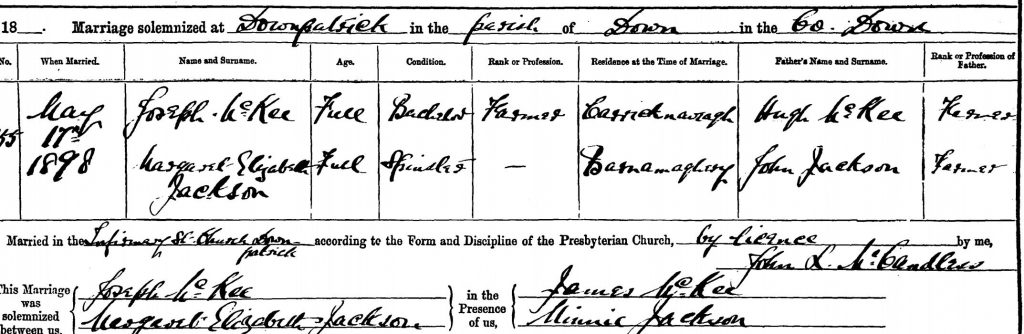 18 . Marriage solemnized at Downpatrick in the parish of Down in the Co. Down
No. When Married. Name and Surname. Age. Condition. Rank or Profession. Residence at the Time of Marriage. Father's Name and Surname. Rank or Profession of Father.
55 May 17th 1898 Joseph McKee Full Bachelor Farmer Carricknaveagh Hugh McKee Farmer
Margaret Elizabeth Jackson Full Spinster — Barnamaghery John Jackson Farmer
Married in the Infirmary St. Church Downpatrick according to the Form and Discipline of the Presbyterian Church, by licence by me,
John L. McCandless
This Marriage was solemnized between us, Joseph McKee in the Presence of us, James McKee
Margaret Elizabeth Jackson Minnie Jackson